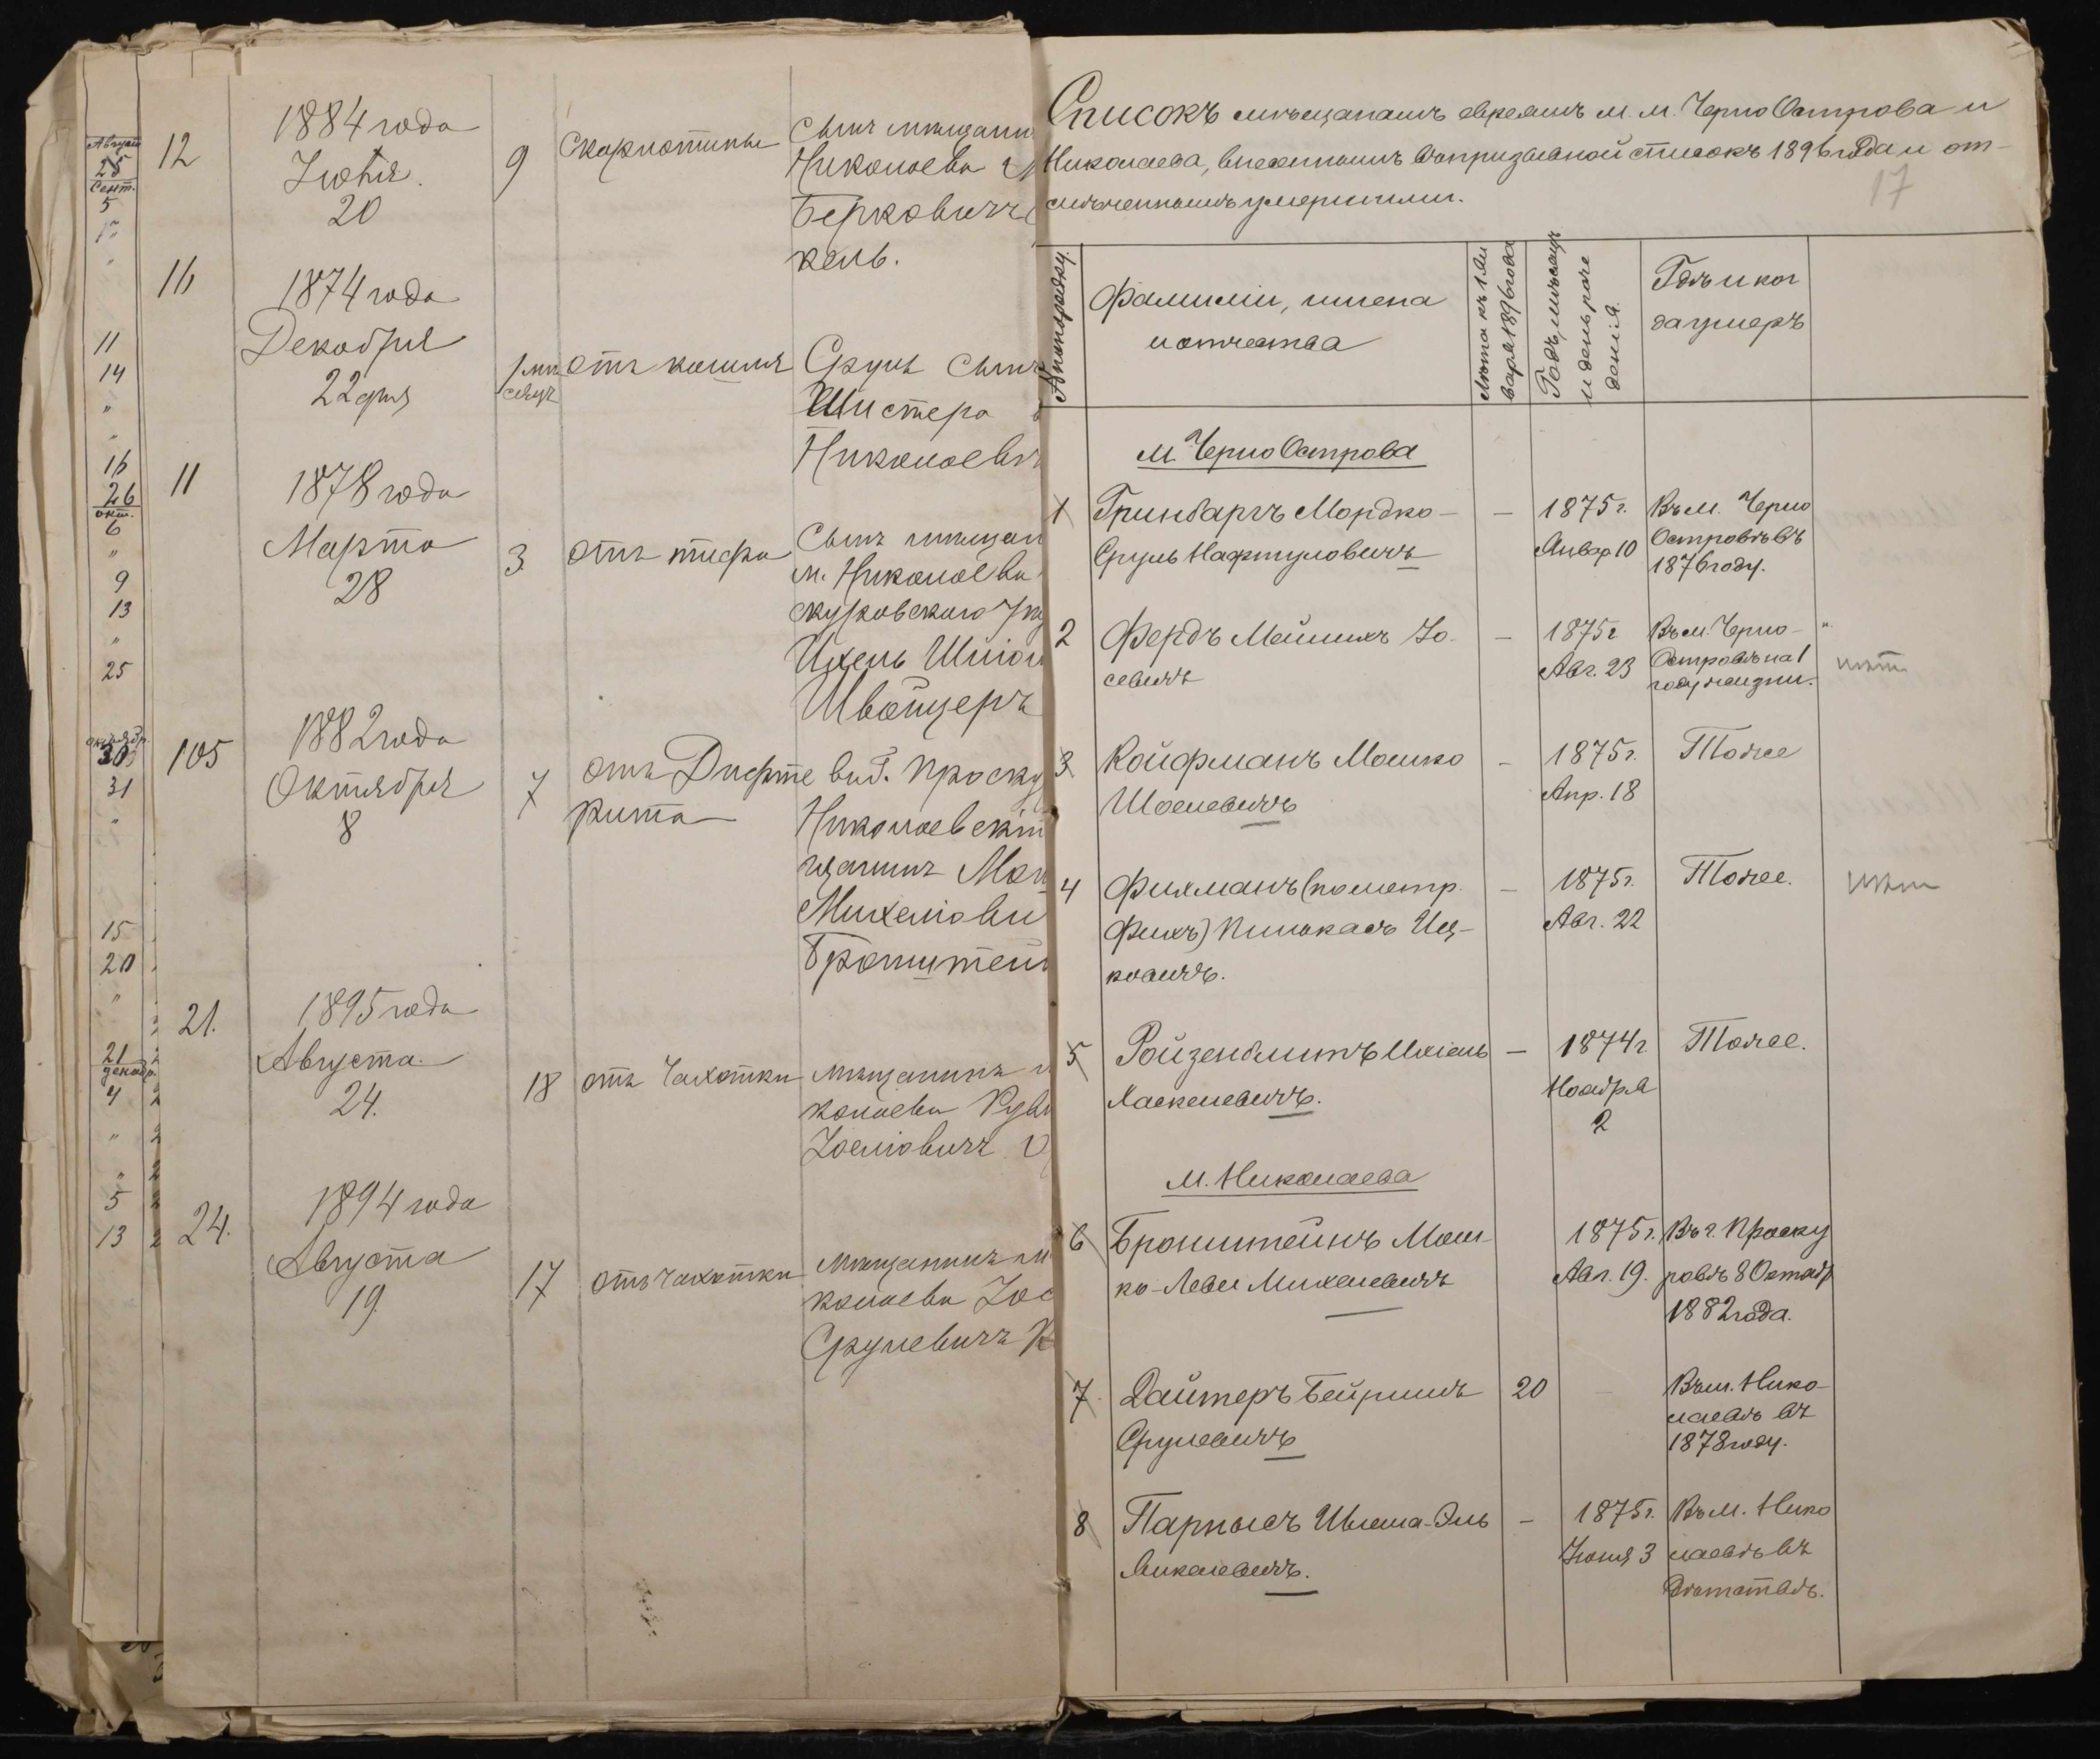 Августа
25
Сент.
5
11
14
"
16
26
окт.
6
"
9
13
"
25
октябр.
30
31
"
15
20
"
21
декабр.
4
"
"
5
13
12
1884 года
Июня
20
9
Скарлотины
Сынъ мещани
Николаева
Берковичъ
кель.
16
1874 года
Декабря
22 дня
1 ме
сяцъ
отъ кашля
Сруль Сынъ
Шистера
Николаевъ
11
1878 года
Марта
28
3
отъ тифа
Сынъ мещан
м. Николаева
скуровского уез
Ихель Шмои
Швойцеръ
105
1882 года
Октября
8
7
отъ Дифте
рита
вид. Проску
Николаевскій
щанинъ Мош
Михелиови
Бронштейн
21.
1895 года
Августа
24.
18
отъ Чахотки
мещанинъ
колаева Руви
Иоелиовичъ
24.
1894 года
Августа
19.
17
отъ чахотки
мещанинъ м
колаева Иос
Срулевичъ К
Списокъ мѣщанамъ евреямъ м. м. Черно Острова и
Николаева, внесеннымъ въ призывной списокъ 1896 года и от-
мѣченнымъ умершими.
17
№ по порядку.
Фамиліи, имена
и отчества
Лѣта къ 1 Ян
варя 1896 года
Годъ, мѣсяцъ
и день рож
денія.
Гдѣ и ког
да умеръ
м. Черно Острова
1
Гринбаргъ Мордко-
Сруль Нафтуловичъ
-
1875 г.
Январ 10
Въ м. Черно
Островѣ въ
1876 году.
2
Фердъ Мейшихъ Іо-
севичъ
-
1875 г
Авг. 23
Въ м. Черно-
Островѣ на 1
году жизни.
"
нѣт
3
Койфманъ Мошко
Шоелевичъ
-
1875 г.
Апр. 18
Тоже
4
Фихманъ (по метр.
Фихъ) Пинькасъ Иц-
ковичъ.
-
1875 г.
Авг. 22
Тоже.
нѣт
5
Ройзенблитъ Ихіель
Хаскелевичъ.
-
1874 г.
Ноября
2
Тоже.
м. Николаева
6
Бронштейнъ Мош-
ко-Леви Михелевичъ
1875 г.
Авг. 19.
Въ г. Проску
ровѣ 8 Октябр
1882 года.
7
Дайтеръ Бейришъ
Срулевичъ
20
Въ м. Нико-
лаевѣ въ
1878 году.
8
Парнысъ Шлема-Эль
Викелевичъ.
-
1875 г.
Іюня 3
Въ м. Нико
лаевѣ въ
дѣтствѣ.